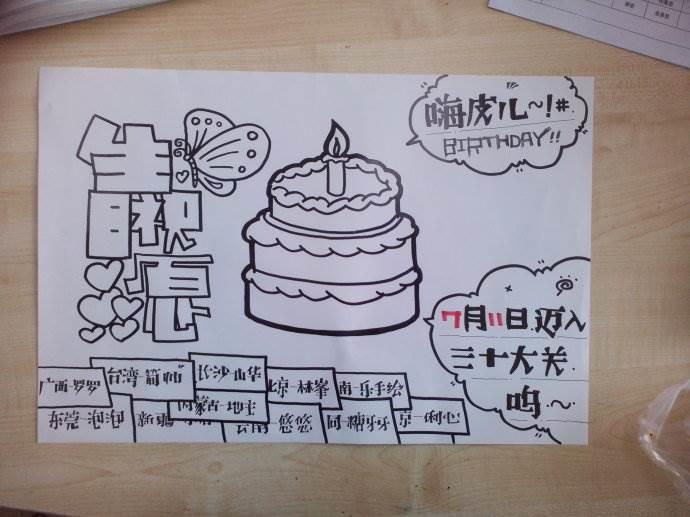 嗨皮儿~!#
BIRTHDAY!!
生日祝愿
7月11日.迈入
三十大关.
呜.~
广西-罗罗
台湾-简帅
长沙-山华
北京-林峯
南-乐手绘
东莞-泡泡
新疆
内蒙古-地主
云南-悠悠
同-糖牙牙
京-俐心